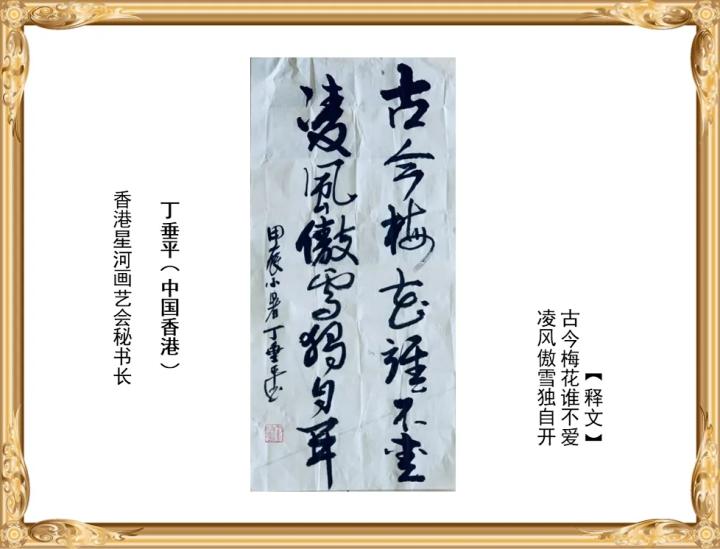 【释文】
古今梅花谁不爱
凌风傲雪独自开
古今梅花誰不愛
凌風傲雪獨自開
甲辰小暑丁垂平书
丁垂平（中国香港）
香港星河画艺会秘书长